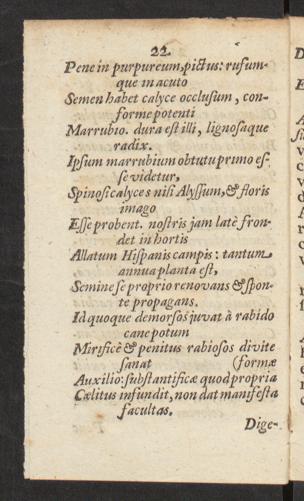 22.
Pene in purpureum, pictus: rufum-
que in acuto
Semen habet calyce occlusum, con-
forme potenti
Marrubio. dura est illi, lignosaque
radix.
Ipsum marrubium obtutu primo es-
se videtur,
Spinosi calyces nisi Alyssum, & floris
imago
Esse probent. nostris jam latè fron-
det in hortis
Allatum Hispanis campis: tantum
annua planta est,
Semine se proprio renovans & spon-
te propagans.
Id quoque demorsos juvat à rabido
cane potum
Mirificè & penitus rabiosos divite
sanat (formæ
Auxilio: substantificæ quod propria
Cælitus infundit, non dat manifesta
facultas.
Dige-